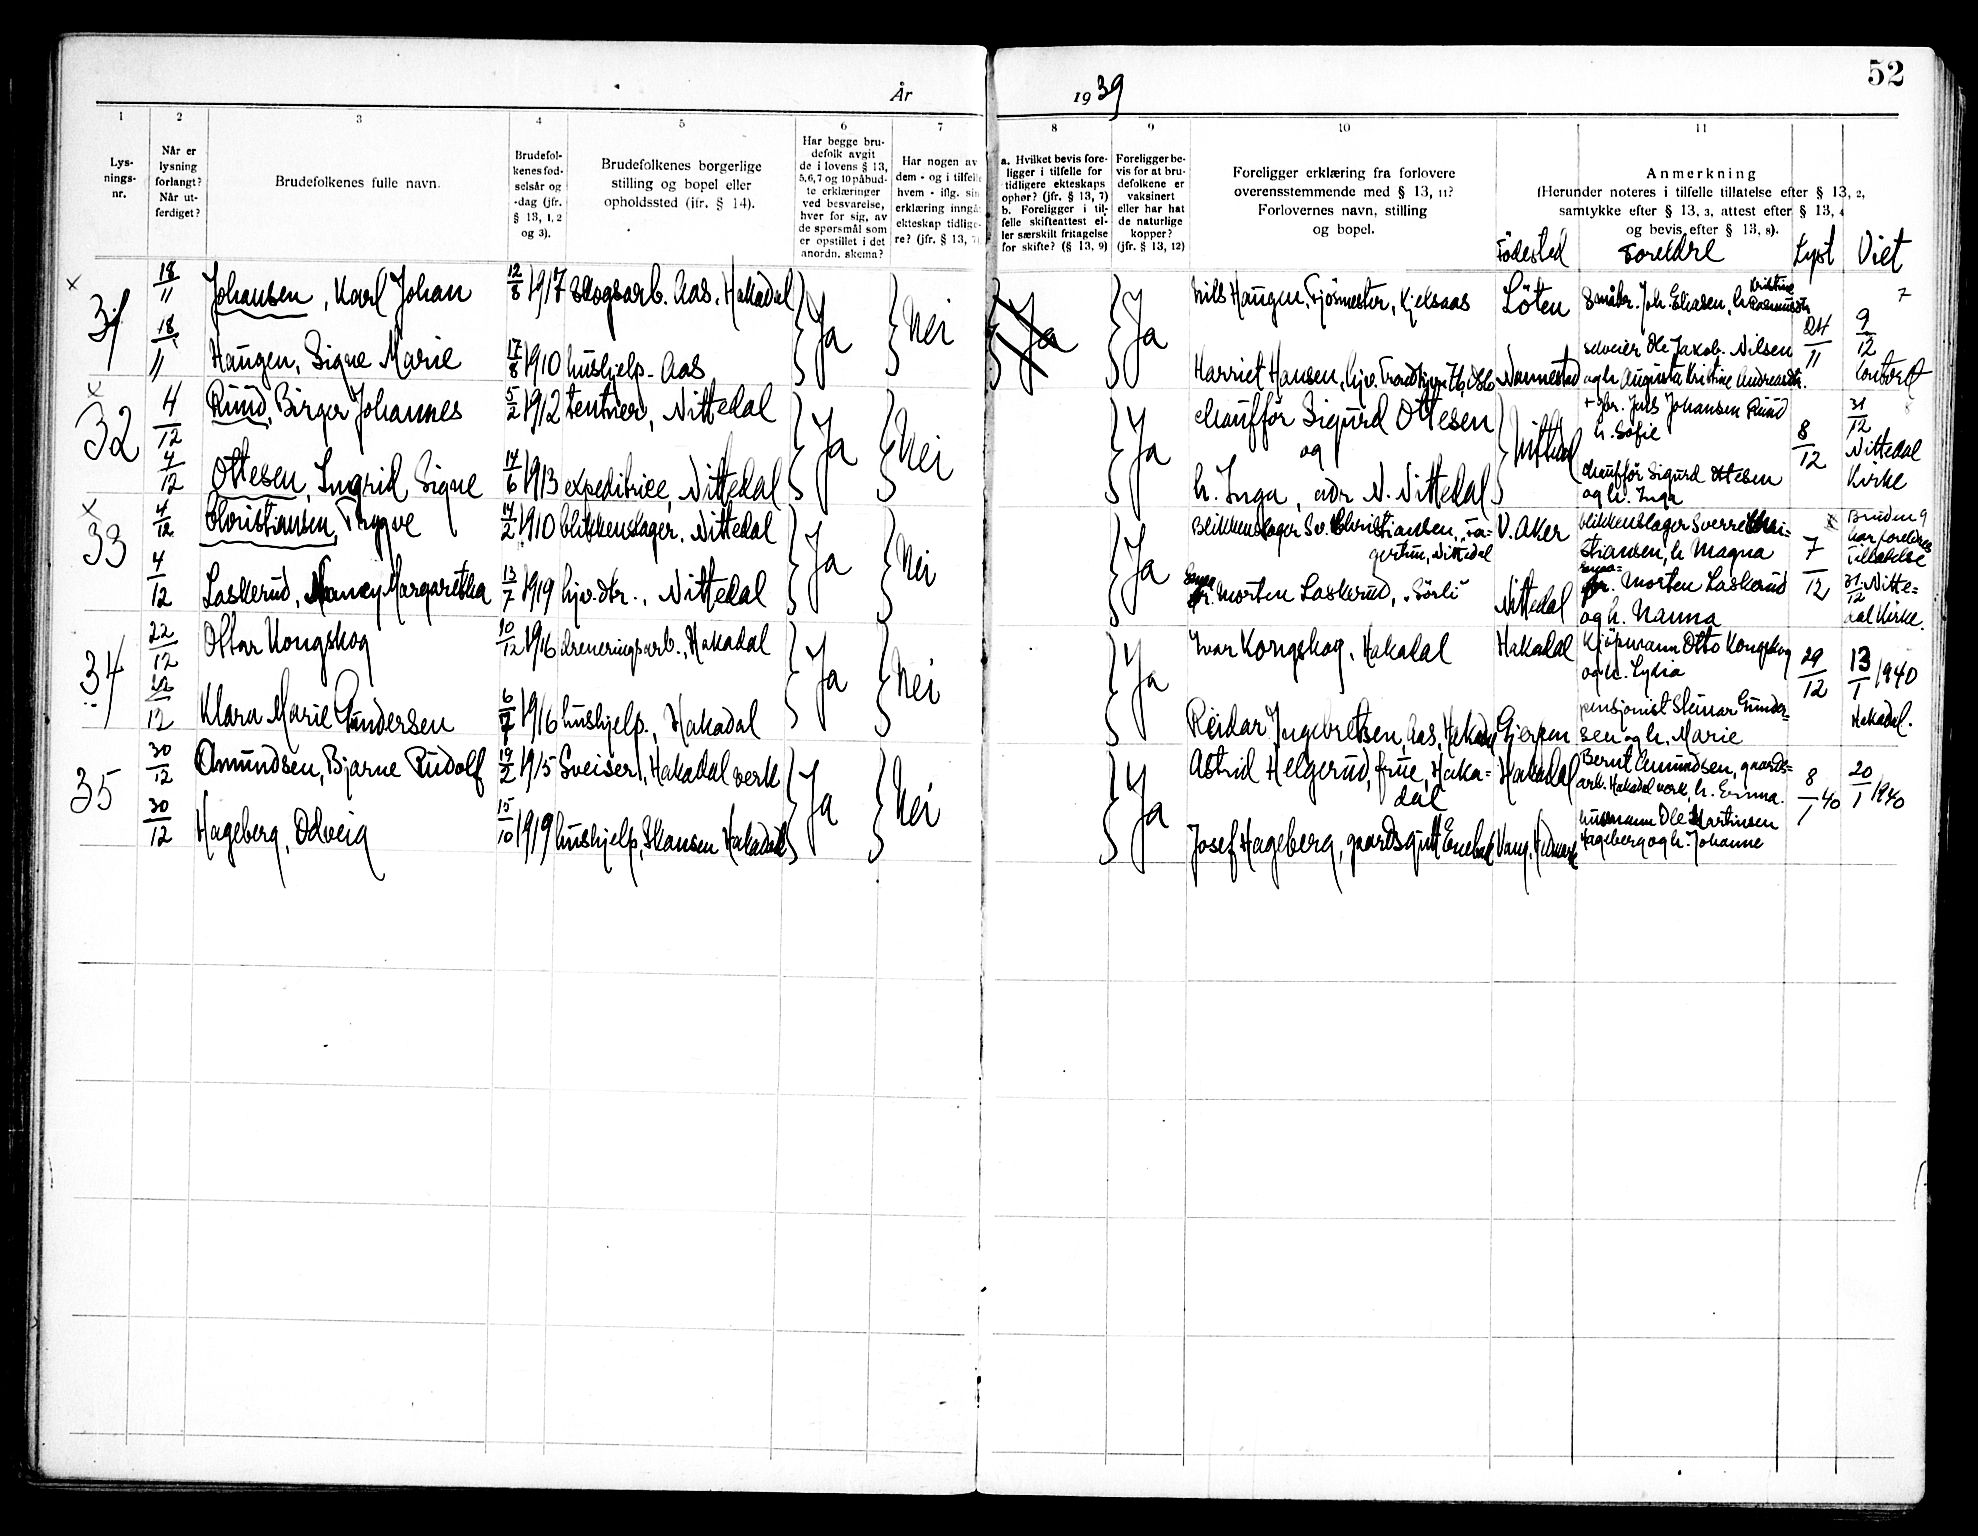 52
År 1939
1
Lys-
nings-
nr.
2
Når er
lysning
forlangt?
Når ut-
ferdiget?
3
Brudefolkenes fulle navn.
4
Brudefol-
kenes fød-
selsår og
-dag (jfr.
§ 13, 1, 2
og 3).
5
Brudefolkenes borgerlige
stilling og bopel eller
opholdssted (jfr. § 14).
6
Har begge bru-
defolk avgit
de i lovens § 13,
5,6,7 og 10 påbud-
te erklæringer
ved besvarelse,
hver for sig, av
de spørsmål som
er opstillet i det
anordn. skema?
7
Har nogen av
dem - og i tilfelle
hvem - iflg. sin
erklæring inngå
ekteskap tidlige-
re? (jfr. § 13, 7)
8
a. Hvilket bevis fore-
ligger i tilfelle for
tidligere ekteskaps
ophør? (jfr. § 13, 7)
b. Foreligger i til-
felle skifteattest el-
ler særskilt fritagelse
for skifte? (§ 13, 9)
9
Foreligger be-
vis for at bru-
defolkene er
vaksinert
eller har hat
de naturlige
kopper?
(jfr. § 13, 12)
10
Foreligger erklæring fra forlovere
overensstemmende med § 13, 11?
Forlovernes navn, stilling
og bopel.
11
Anmerkning
(Herunder noteres i tilfelle tillatelse efter § 13, 2,
samtykke efter § 13, 3, attest efter § 13, 4
og bevis efter § 13, 8).
Födested Foreldre Lyst Viet
x
31
18/11 Johansen, Karl Johan 12/8 1917 skogsarb. Aas, Hakadal
18/11 Haugen, Signe Marie 17/8 1910 hushjelp - Aas
Ja Nei Ja Ja
Nils Haugen, Fjösmester, Kjelsaas Löten
Småbr. Joh. Eliasen, h. Kristine
Harriet Hansen, Nannestad
selveier Ole Jakob Nilsen
og h. Augusta Kristine Andreasdtr.
24/11
9/12
Kontoret
x
32
4/12 Ruud, Birger Johannes 5/2 1912 rentner, Nittedal
4/12 Ottesen, Ingrid Signe 14/6 1913 expeditrice, Nittedal
Ja Nei Ja
chaufför Sigurd Ottesen
og
h. Inga, adr N. Nittedal
Nittedal
Juls Johansen Ruud
h. Sofie
chaufför Sigurd Ottesen
og h. Inga
8/12
31/12
Nittedal
Kirke
x
33
4/12 Christiansen, Trygve 14/2 1910 blikkenslager, Nittedal
4/12 Laskerud, Nancy Margaretha 13/7 1919 hjv. dtr., Nittedal
Ja Nei Ja
Blikkenslager Sv. Christiansen, Fa-
gertun, Nittedal
V. Aker
blikkenslager Sverre Chri-
stiansen, h. Magna
Morten Laskerud, Sörli
Nittedal
Morten Laskerud
og h. Nanna
7/12
Bruden
har foreldres
tillatelse
31/12 Nitte-
dal Kirke.
34
22/12 Ottar Kongskog 10/12 1916 dreneringsarb., Hakadal
22/12 Klara Marie Gundersen 6/7 1916 hushjelp, Hakadal
Ja Nei Ja
Ivar Kongskog, Hakadal Hakadal
Kjöpmann Otto Kongskog
og h. Lydia
Reidar Ingebretsen, Aas, Hakadal Gjerpen
pensjonist Steinar Gunder-
sen og h. Marie
29/12
13/1 1940
Hakadal.
35
30/12 Amundsen, Bjarne Rudolf 19/2 1915 Sveiser, Hakadal verk
30/12 Hageberg, Odveig 15/10 1919 hushjelp, Skansen Hakadal
Ja Nei Ja
Astrid Helgerud, frue, Haka-
dal
Hakadal
Bernt Amundsen, gaards-
arb. Hakadal verk, h. Emma.
Josef Hageberg, gaardsgutt Enebak Vang, Hedmark
husmann Ole Martinsen
Hageberg og h. Johanne
8/1 40
20/1 1940